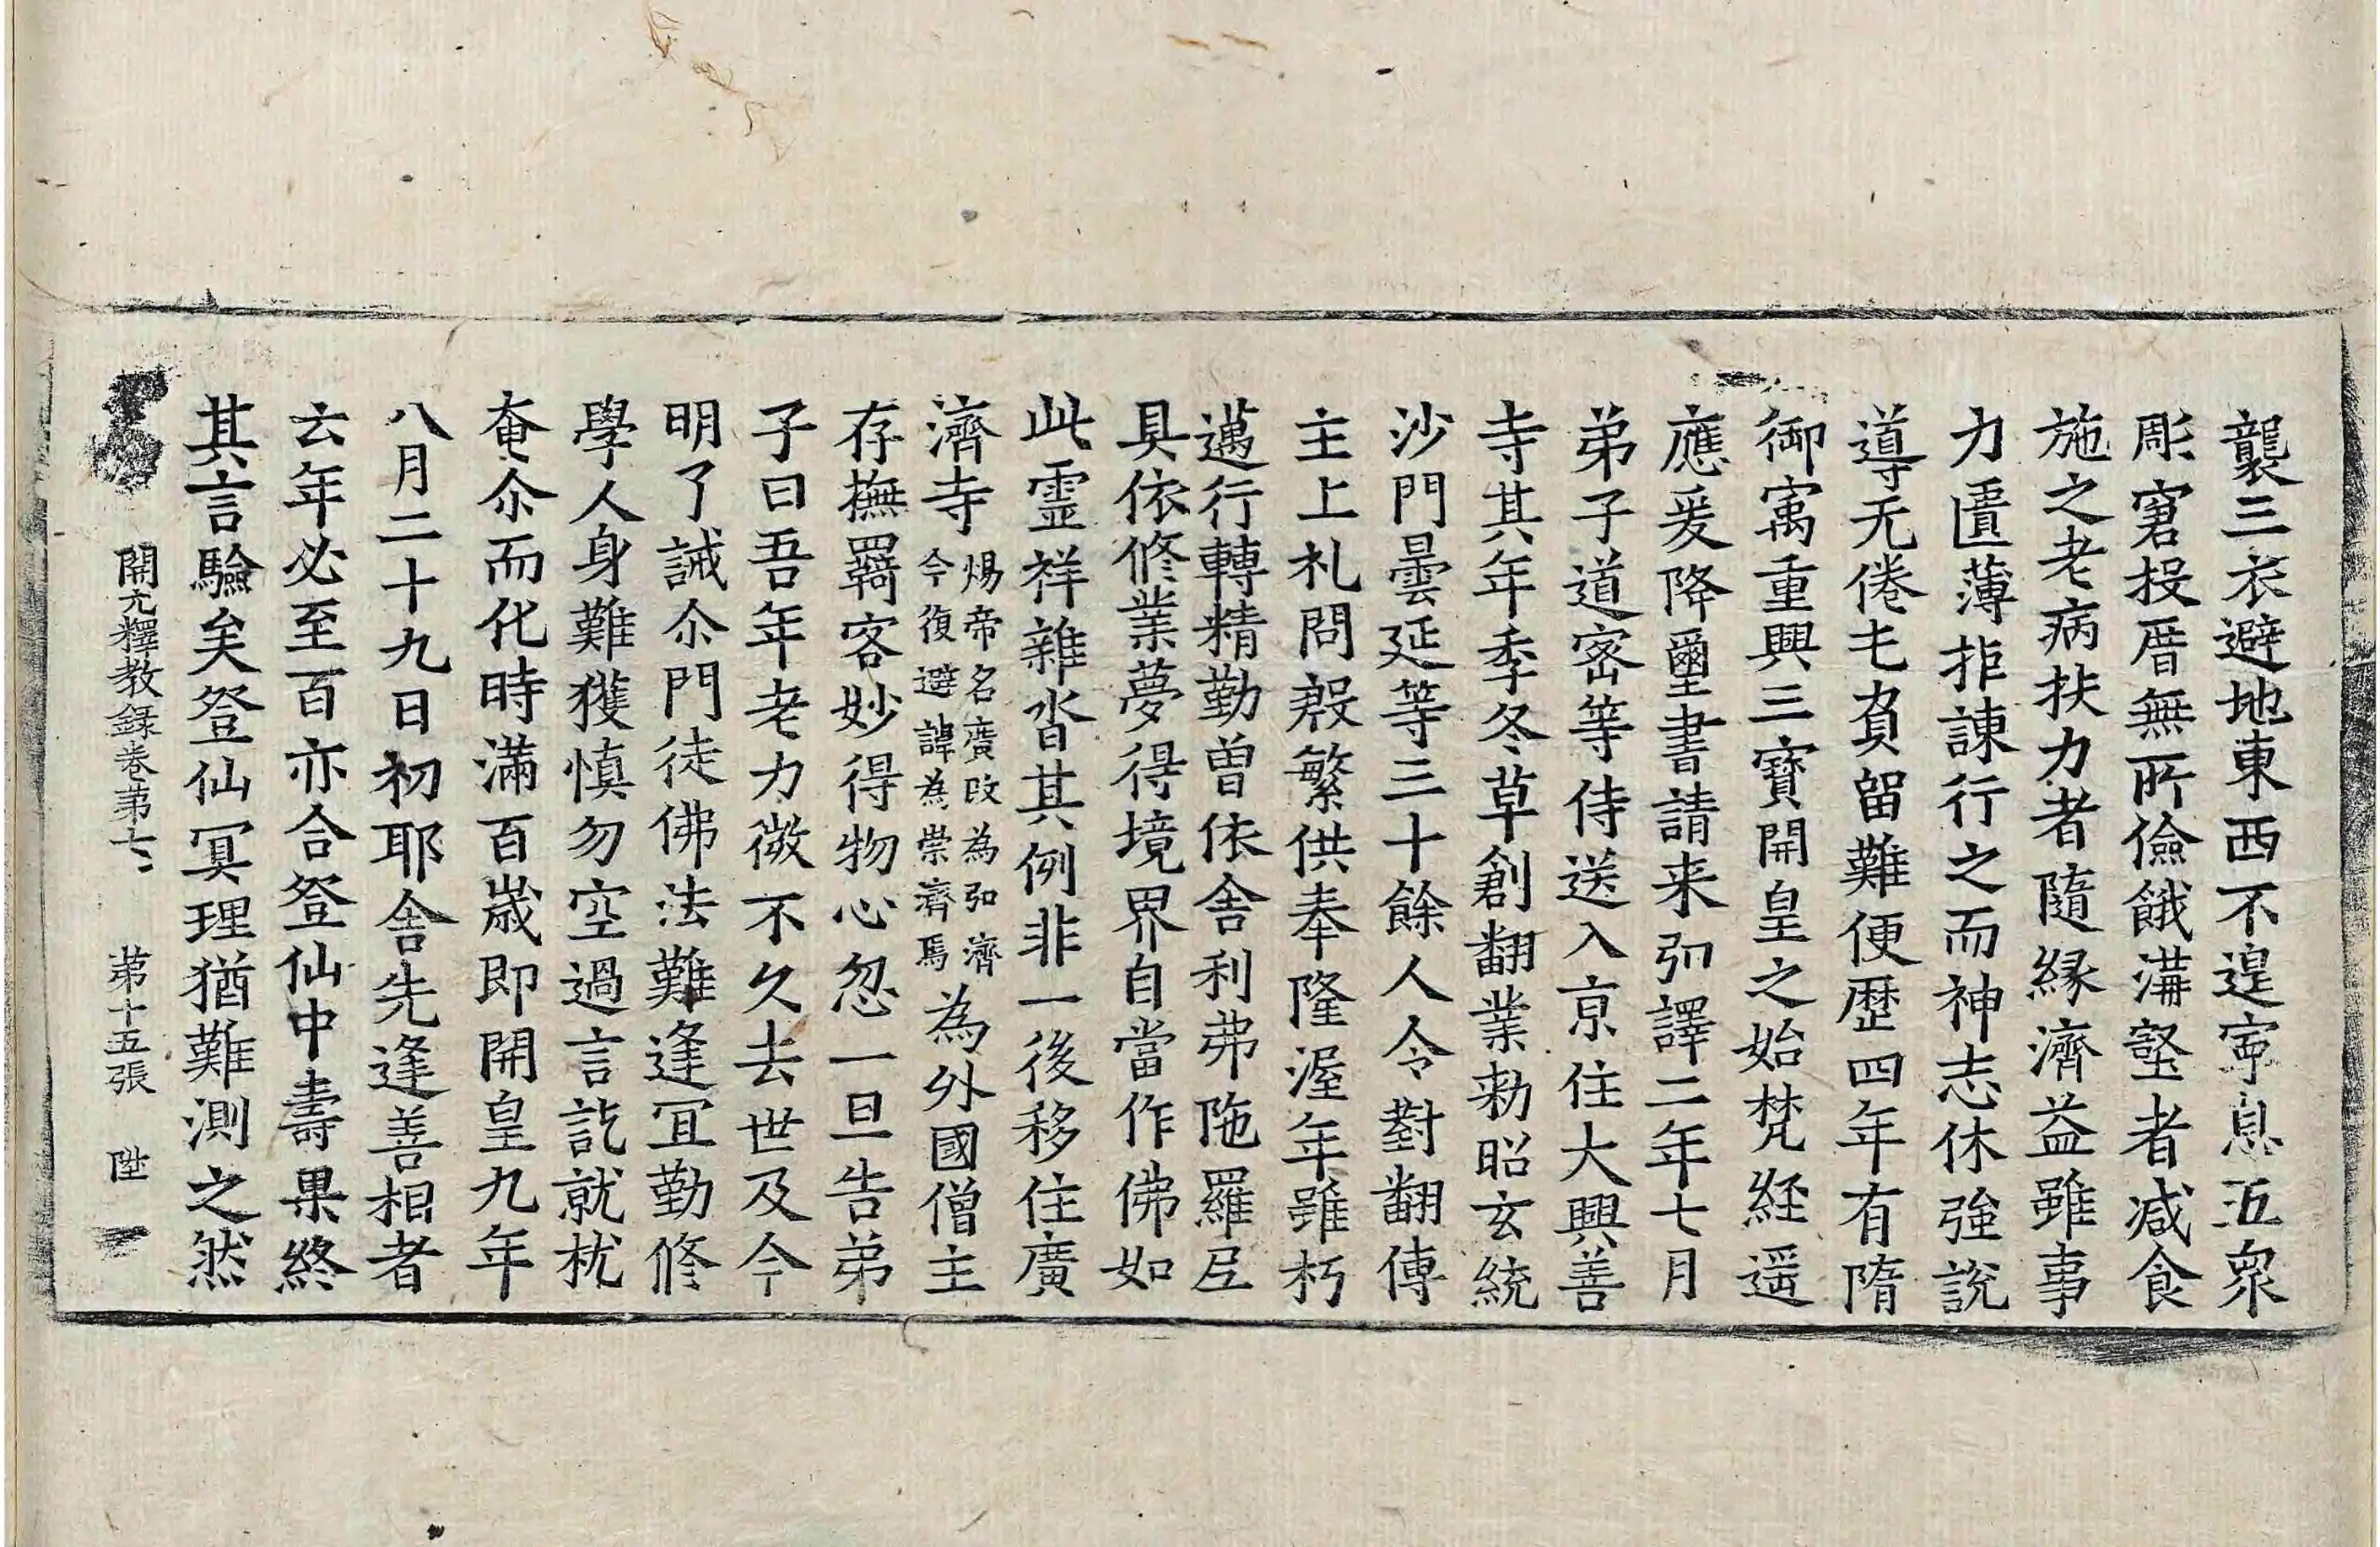 襲三衣避地東西不遑寧息五衆
彫窘投厝無所儉餓溝壑者減食
施之老病扶力者隨緣濟益雖事
力匱薄拒諫行之而神志休強說
導无倦七負留難便歷四年有隋
御寓重興三寶開皇之始梵經遥
應爰降璽書請来弘譯二年七月
弟子道密等侍送入京住大興善
寺其年季冬草創翻業勑昭玄統
沙門曇延等三十餘人令對翻傳
主上札問殷繁供奉隆渥年雖朽
邁行轉精勤曾依舍利弗陁羅尼
具依修業夢得境界自當作佛如
此靈祥雜沓其例非一後移住廣
濟寺煬帝名廣改為弘濟今復避諱為崇濟焉為外國僧主
存撫羈客妙得物心忽一旦告弟
子曰吾年老力微不久去世及今
明了誡尒門徒佛法難逢冝勤修
學人身難獲慎勿空過言訖就枕
奄尒而化時滿百歲即開皇九年
八月二十九日初耶舍先逢善相者
云年必至百亦合登仙中壽果終
其言驗矣登仙冥理猶難測之然
開元釋教録卷第七 第十五張 陞